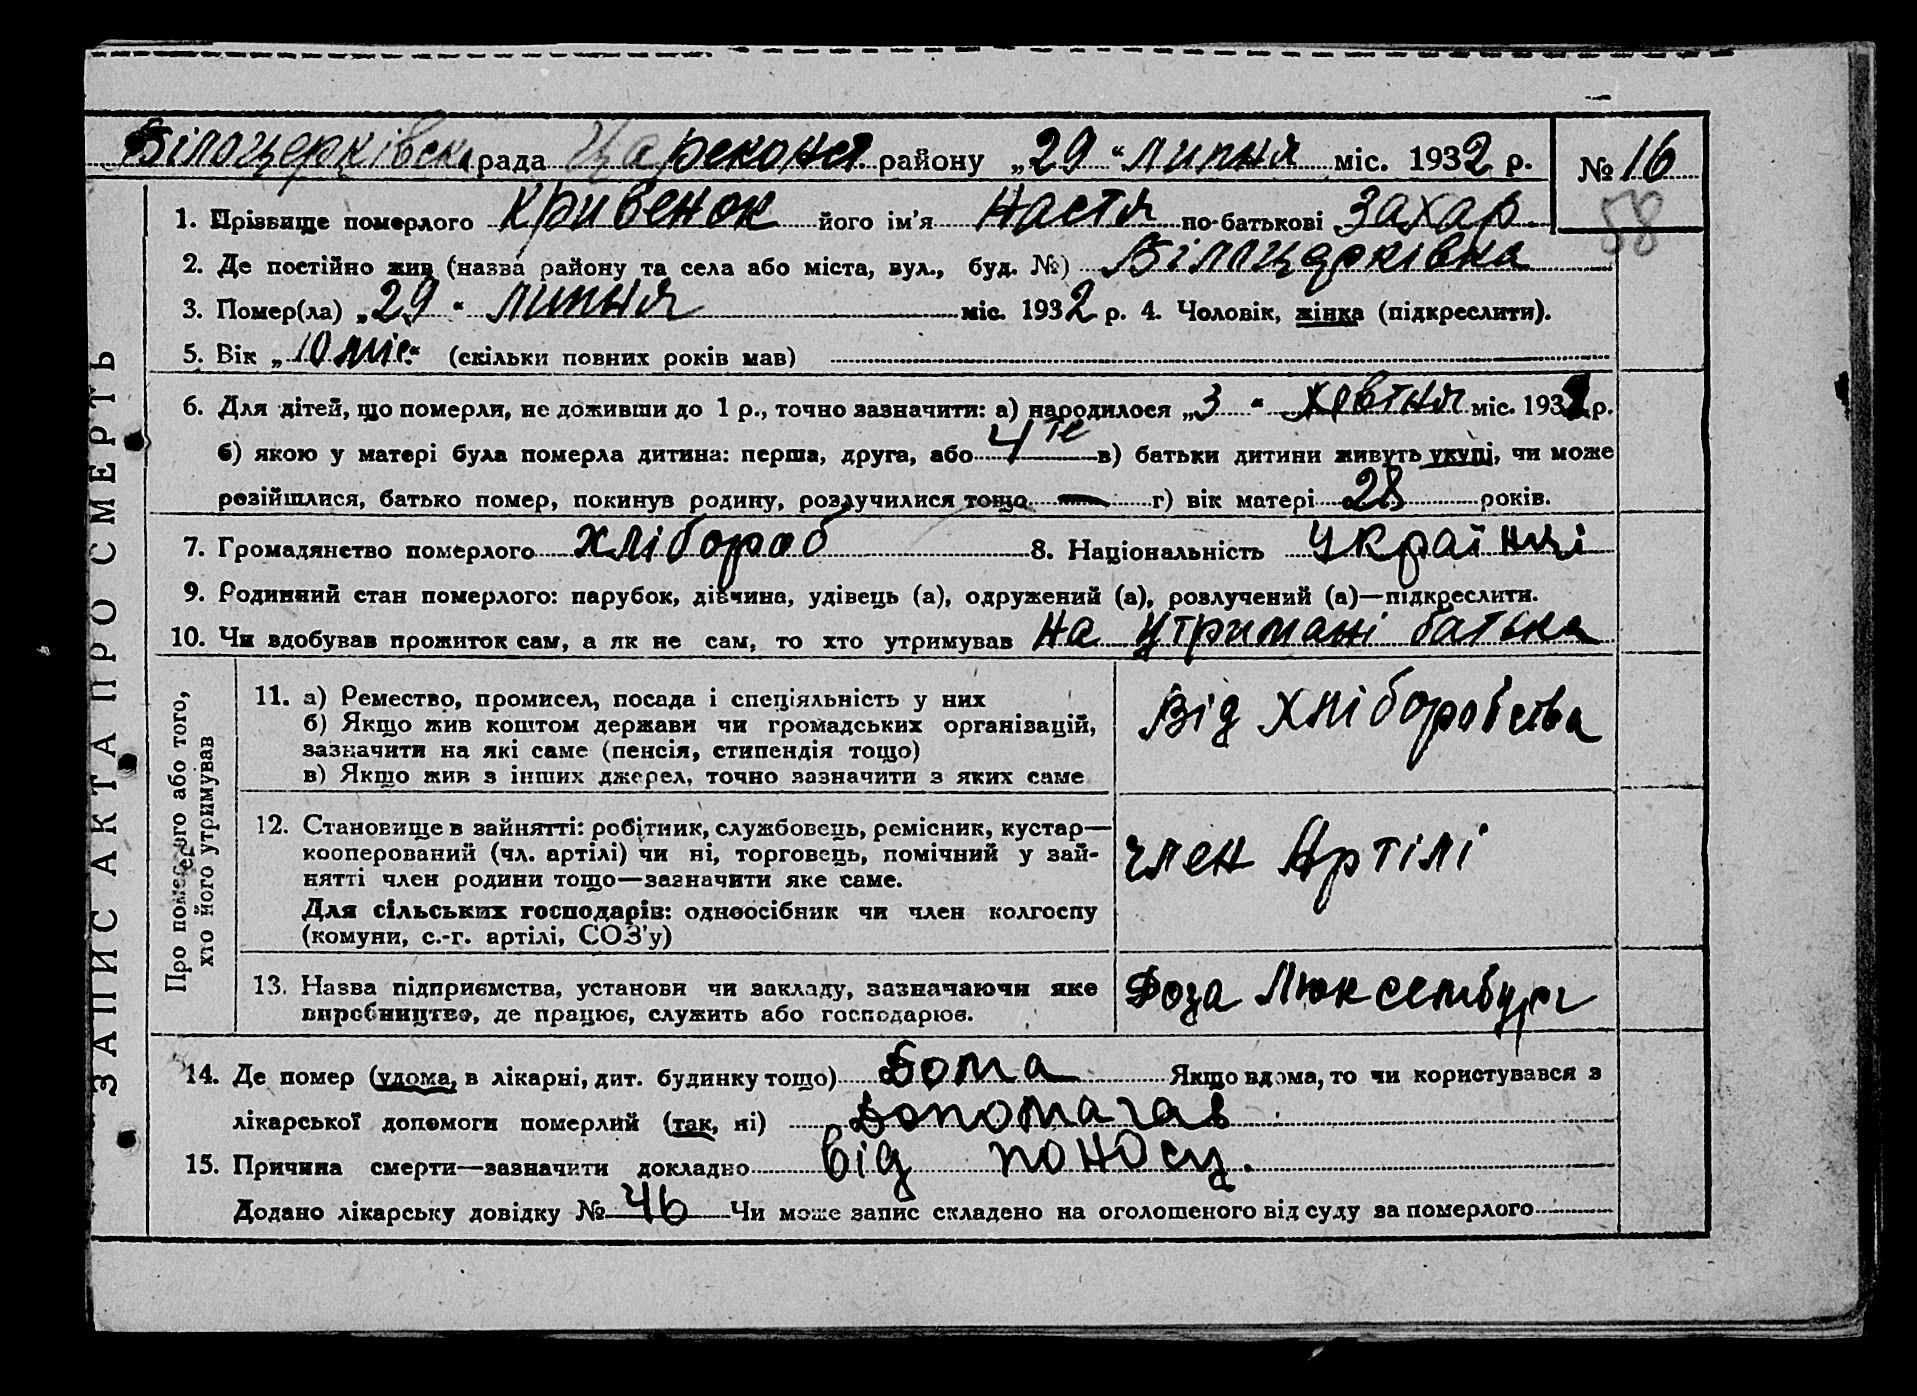 Білоцерківск рада Цареконст району „29“ липня міс. 1932 р. № 16
58
1. Прізвище померлого Кривенок його ім'я Настя по-батькові Захар.
2. Де постійно жив (назва району та села або міста, вул., буд. №) Білоцерківка
3. Помер(ла) „29“ липня міс. 1932 р. 4. Чоловік, жінка (підкреслити).
5. Вік „10 міс.“ (скільки повних років мав)
6. Для дітей, що померли, не доживши до 1 р., точно зазначити: а) народилося „3“ жовтня міс. 193 р.
б) якою у матері була померла дитина: перша, друга, або 4те в) батьки дитини живуть укупі, чи може
розійшлися, батько помер, покинув родину, розлучилися тощо — г) вік матері 28 років.
7. Громадянство померлого хлібороб 8. Національність Українці
9. Родинний стан померлого: парубок, дівчина, удівець (а), одружений (а), розлучений (а)—підкреслити.
10. Чи здобував прожиток сам, а як не сам, то хто утримував На утримані батька
ЗАПИС АКТА ПРО СМЕРТЬ
Про померлого або того,
хто його утримував
11. а) Ремество, промисел, посада і спеціяльність у них
б) Якщо жив коштом держави чи громадських організацій,
зазначити на які саме (пенсія, стипендія тощо)
в) Якщо жив з інших джерел, точно зазначити з яких саме
Від хліборобства
12. Становище в зайнятті: робітник, службовець, ремісник, кустар—
кооперований (чл. артілі) чи ні, торговець, помічний у зай-
нятті член родини тощо—зазначити яке саме.
Для сільських господарів: одноосібник чи член колгоспу
(комуни, с.-г. артілі, СОЗ'у)
член Артілі
13. Назва підприємства, установи чи закладу, зазначаючи яке
виробництво, де працює, служить або господарює.
Роза Люксембург
14. Де помер (удома, в лікарні, дит. будинку тощо) Дома Якщо вдома, то чи користувався з
лікарської допомоги померлий (так, ні) Допомагав
15. Причина смерти—зазначити докладно від поносу.
Додано лікарську довідку № 46 Чи може запис складено на оголошеного від суду за померлого